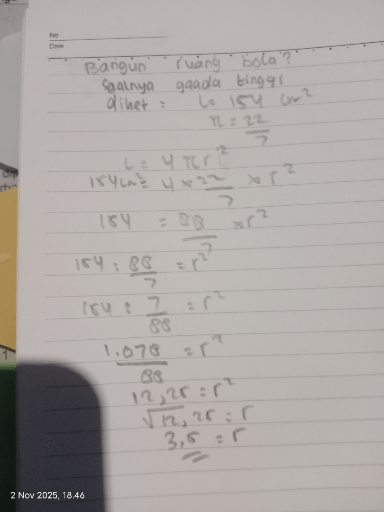 No
Date
Bangun ruang bola?
Soalnya gaada tinggi
diket : L = 154 cm²
π = 22/7
L = 4 π r²
154 cm² = 4 x 22/7 x r²
154 = 88/7 x r²
154 : 88/7 = r²
154 : 7/88 = r²
1.078/88 = r²
12,25 = r²
√12,25 = r
3,5 = r
2 Nov 2025, 18.46